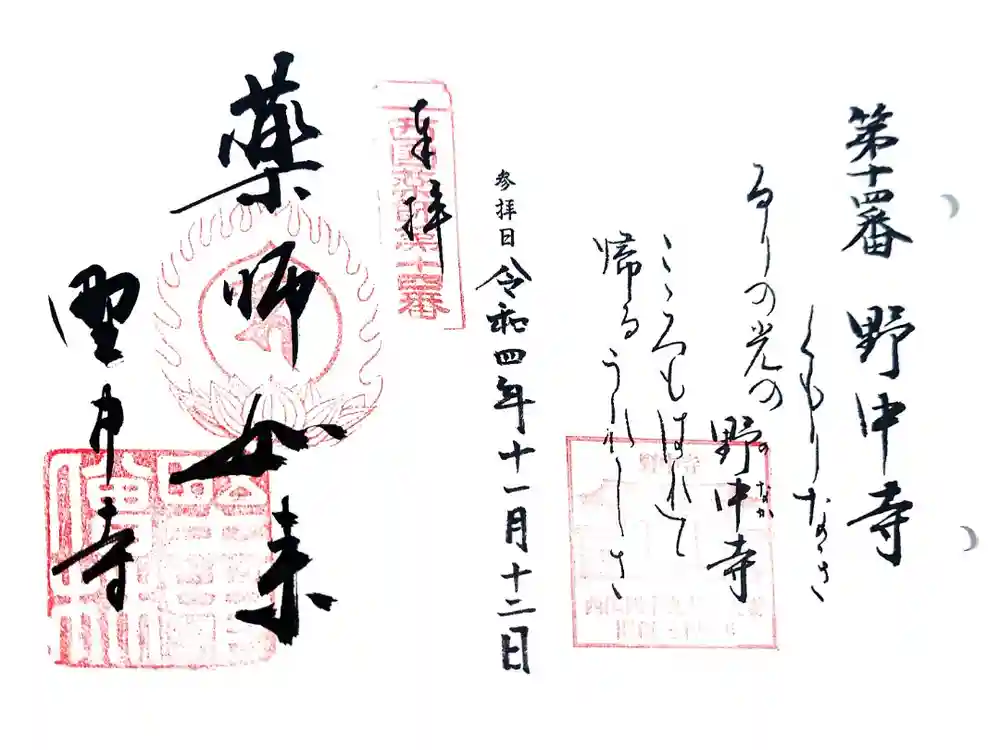 第十四番 野中寺
くもりなき
るりの光の
野中寺
のなか
こゝろもはれて
帰るうれしさ
参拝日 令和四年十一月十二日
奉拝
西国薬師第十四番
薬師如来
野中寺
野中寺